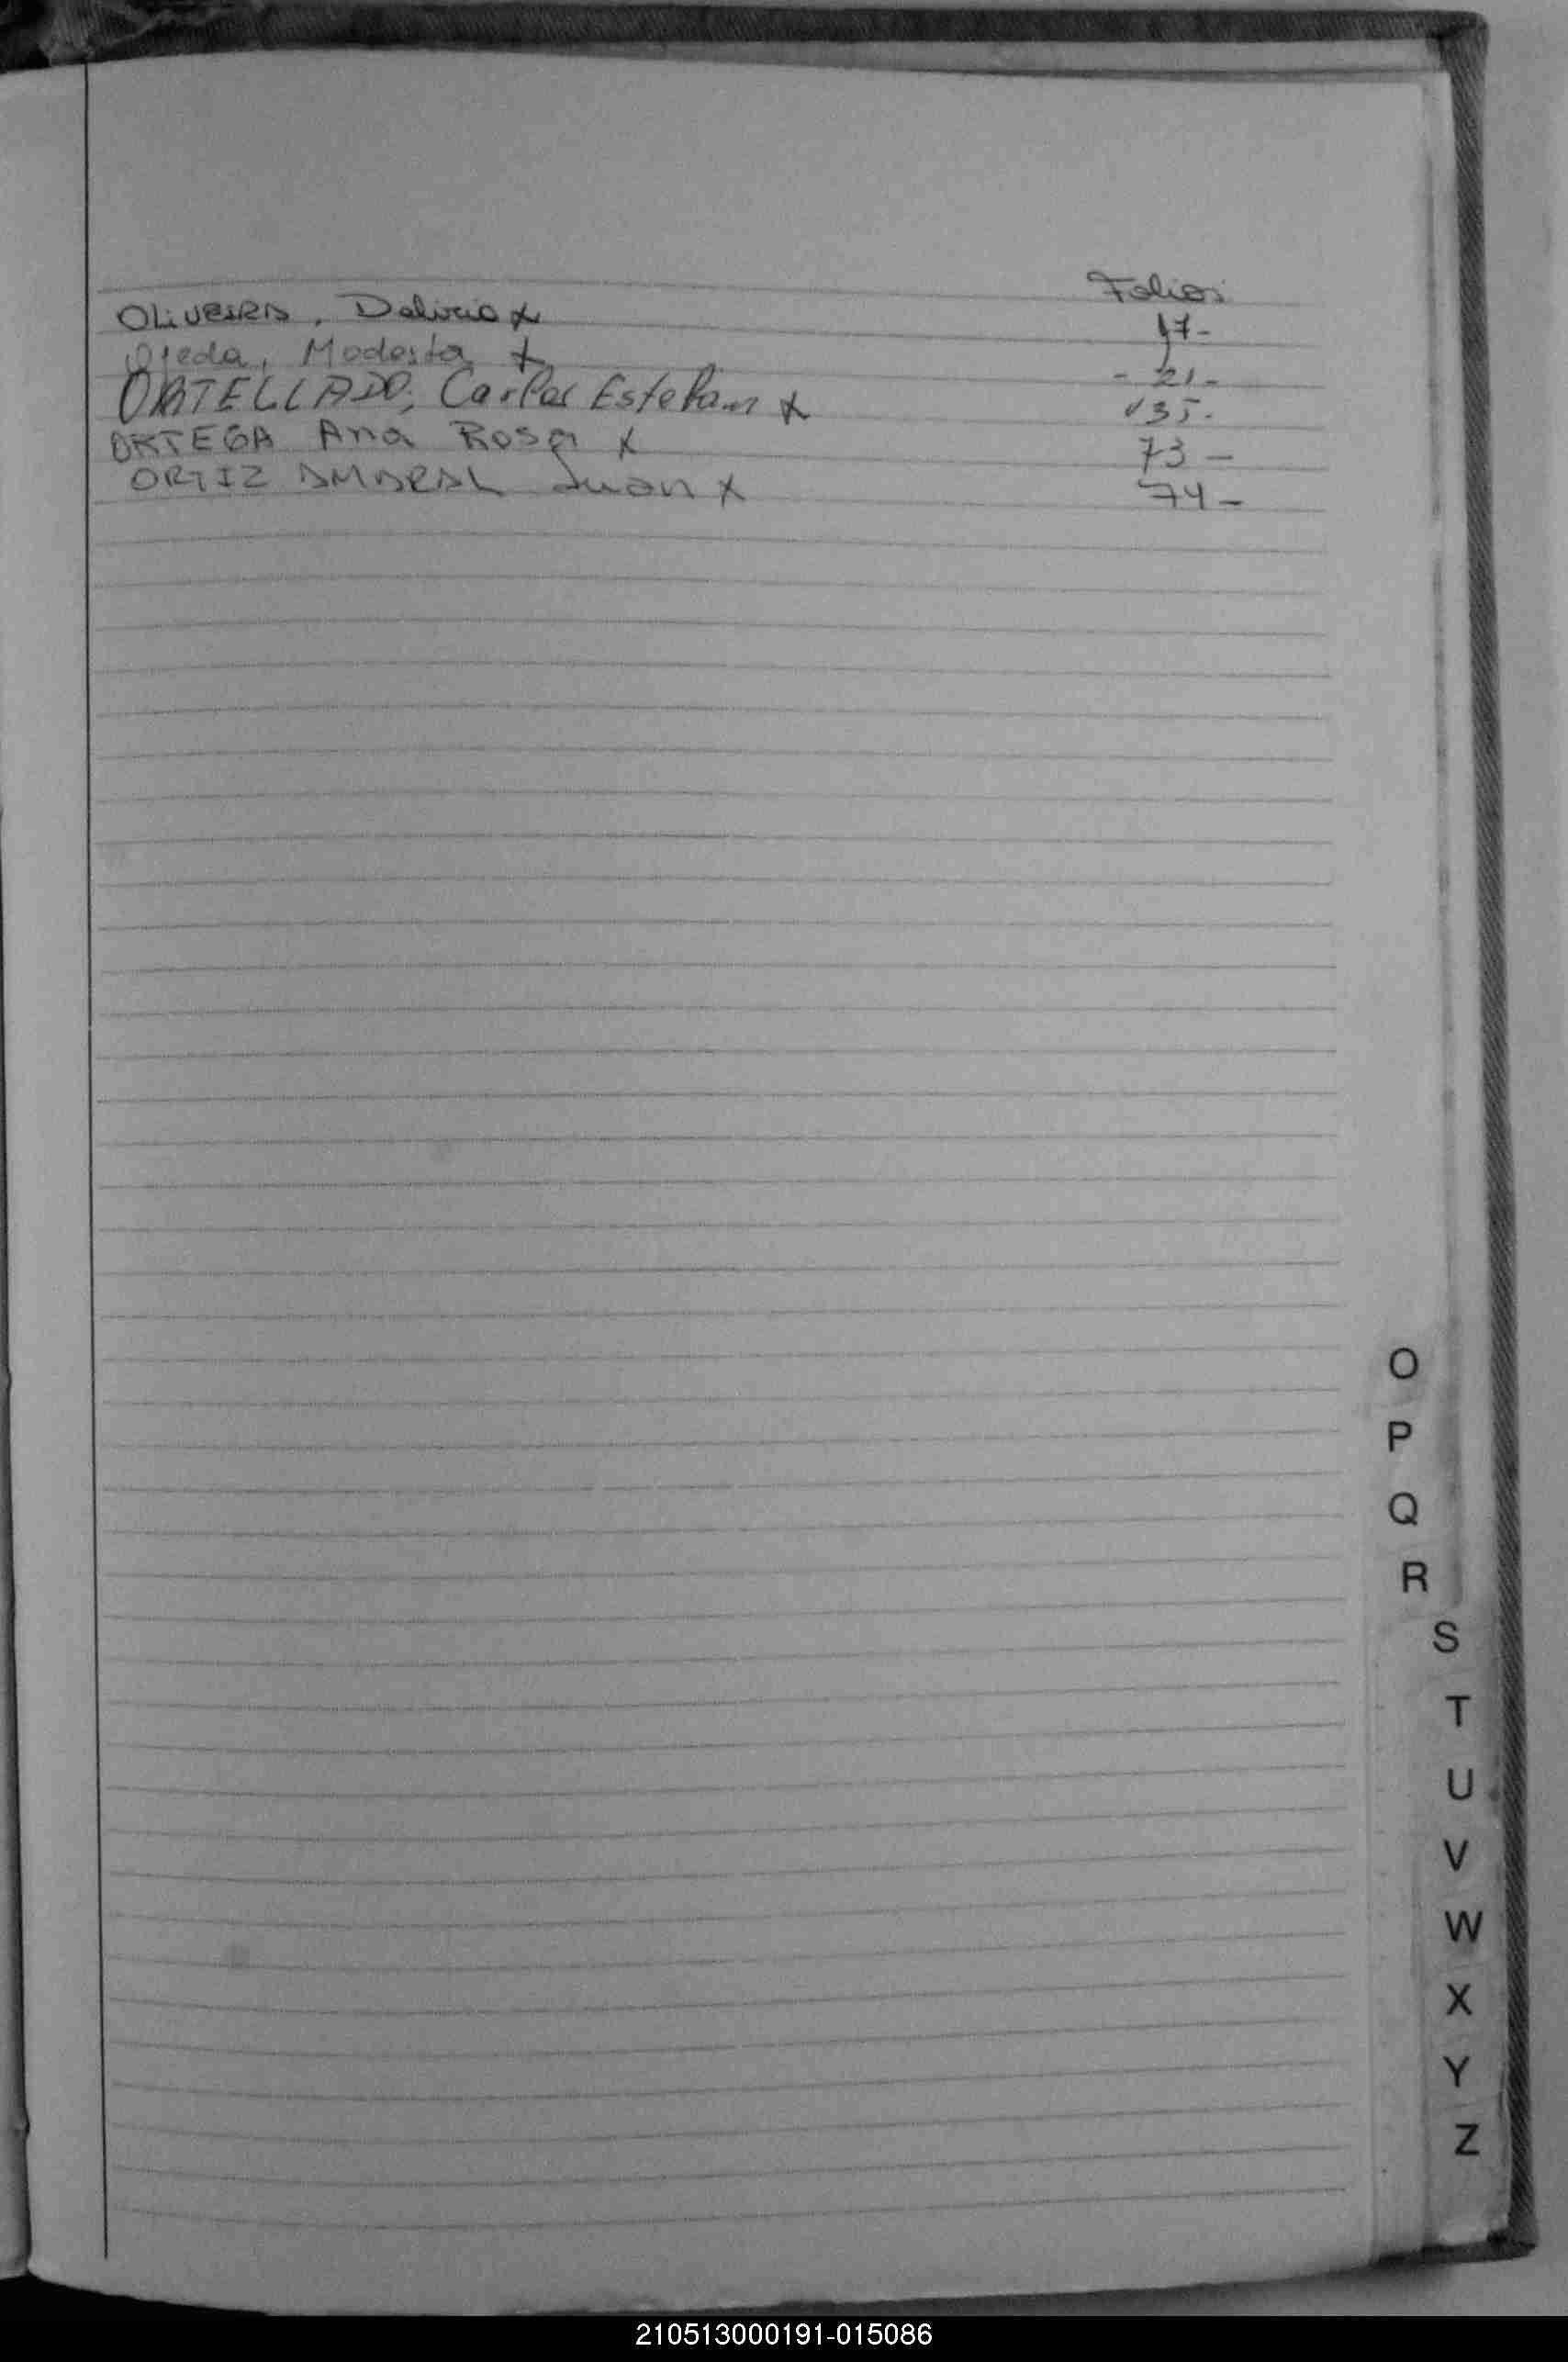 Folios
OLIVEIRA, Delicio x 17-
Ojeda, Modesta x - 21-
ORTELLADO, Carlos Esteban x 35.
ORTEGA Ana Rosa x 73 -
ORTIZ AMARAL Juan x 74 -
O
P
Q
R
S
T
U
V
W
X
Y
Z
210513000191-015086